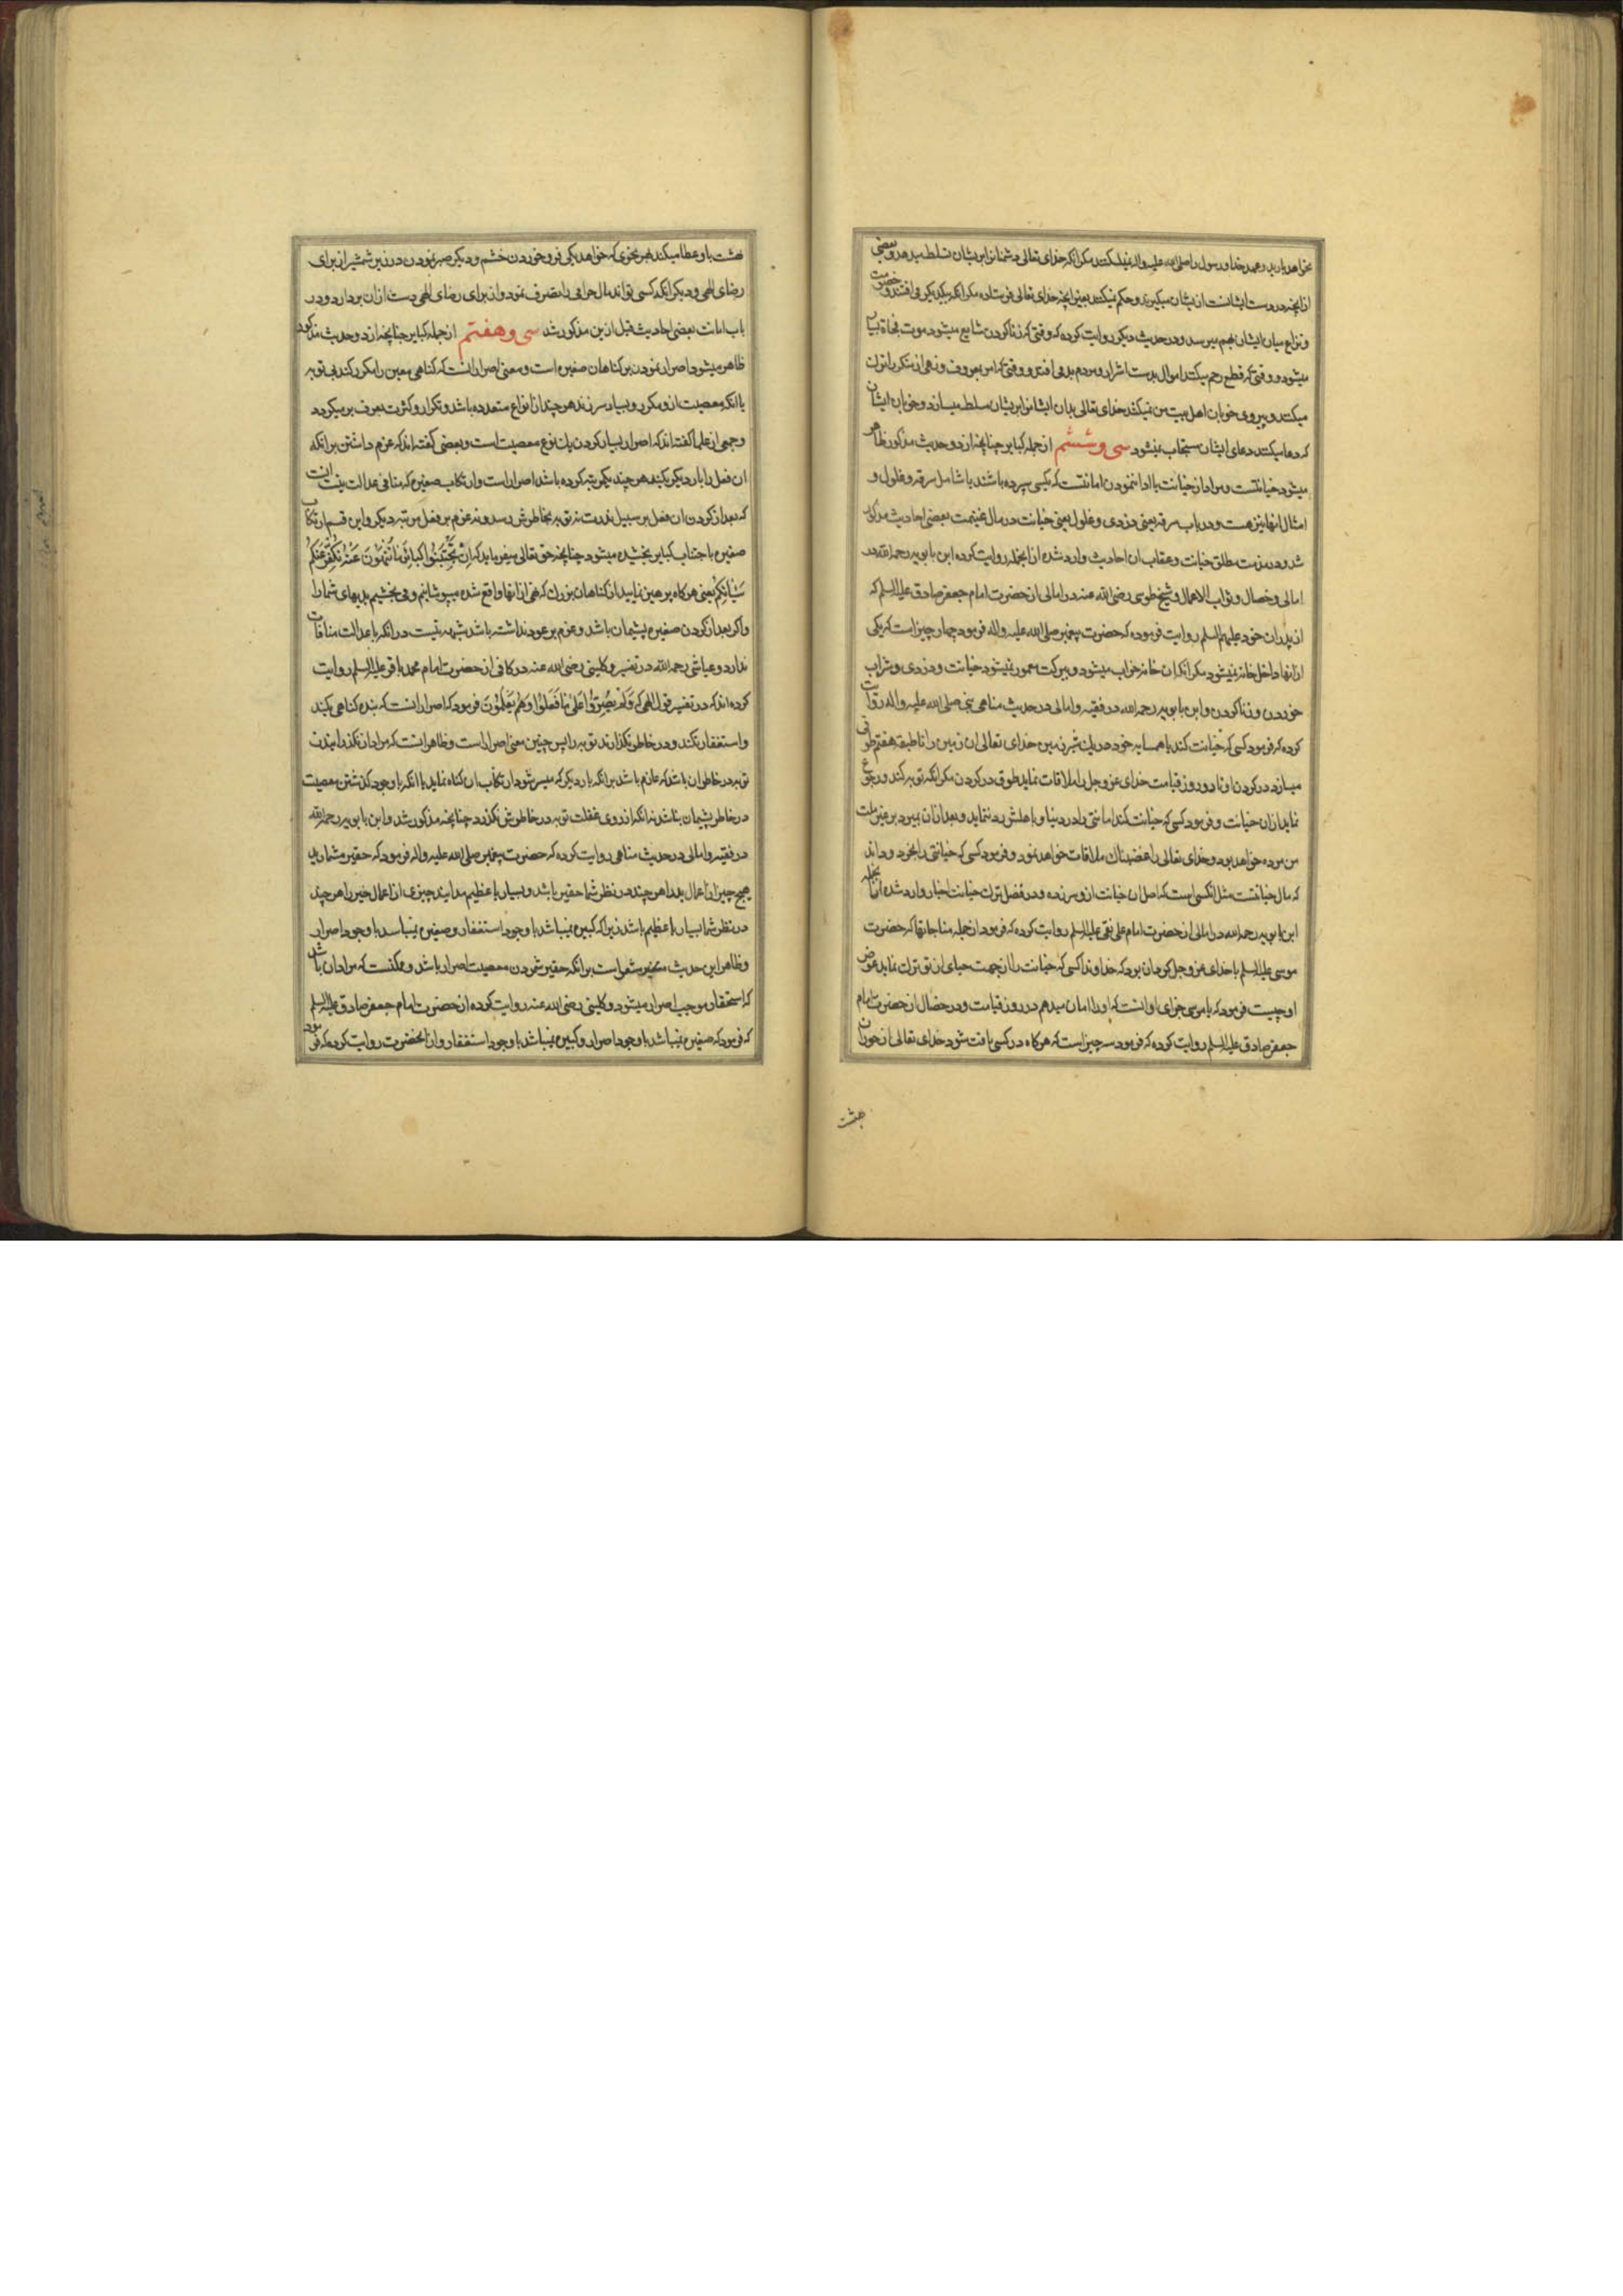 نخواهد بارید و عهد خدا و رسول را صلی الله علیه واله نمیشکنند مکر انکه خدای تعالی دشمنانرا بر ایشان تسلط میدهد و بعضی
از انچه در دست ایشانست از ایشان میکیرند و حکم نمیکنند بغیر انچه خدای تعالی فرستاده مکر انکه بیکدیکر می افتند و خصومت
و نزاع میان ایشان بهم میرسد و در حدیث دیکر روایت کرده که وقتی که زنا کردن شایع میشود موت فجاة بسیار
میشود و وقتی که قطع رحم میکنند اموال بدست اشرار و مردم بد می افتد و وقتی که امر بمعروف و نهی از منکر را ترک
میکنند و پیروی خوبان اهل بیت من نمیکنند خدای تعالی بدان ایشانرا بر ایشان مسلط میسازد و خوبان ایشان
که دعا میکنند دعای ایشان مستجاب نمیشود سی و ششم از جمله کبایر چنانچه از دو حدیث مذکور ظاهر
میشود خیانتست و مراد از خیانت یا ادا ننمودن امانتست که بکسی سپرده باشند یا شامل سرقه و غلول و
امثال انها نیز هست و در باب سرقه یعنی دزدی و غلول یعنی خیانت در مال غنیمت بعضی احادیث مذکور
شد و در مذمت مطلق خیانت و عقاب ان احادیث وارد شده از انجمله روایت کرده ابن بابویه رحمه الله در
امالی و خصال و ثواب الاعمال و شیخ طوسی رضی الله عنه در امالی از حضرت امام جعفر صادق علیه السلم که
از پدران خود علیهم السلم روایت فرموده که حضرت پیغمبر صلی الله علیه واله فرمود چهار چیز است که یکی
از انها داخل خانه نمیشود مکر انکه ان خانه خراب میشود و ببرکت معمور نمیشود خیانت و دزدی و شراب
خوردن و زنا کردن و ابن بابویه رحمه الله در فقیه و امالی در حدیث مناهی نبی صلی الله علیه واله روایت
کرده که فرمود کسی که خیانت کند با همسایه خود در یک شبر زمین خدای تعالی ان زمین را تا طبقه هفتم طوقی
میسازد در کردن او تا در روز قیامت خدای عز و جل را ملاقات نماید طوق در کردن مکر انکه توبه کند و رجوع
نماید از ان خیانت و فرمود کسی که خیانت کند امانتی را در دنیا و باهلش رد ننماید و بعد از ان بمیرد بر غیر ملت
من مرده خواهد بود و خدای تعالی را غضبناک ملاقات خواهد نمود و فرمود کسی که خیانتی را بخرد و داند
که مال خیانتست مثل انکسی است که اصل ان خیانت ازو سر زده و در فضل ترک خیانت اخبار وارد شده از انجمله
ابن بابویه رحمه الله در امالی از حضرت امام علی نقی علیه السلم روایت کرده که فرمود از جمله مناجاتها که حضرت
موسی علیه السلم با خدای عز و جل کرد ان بود که خداوندا کسی که خیانت را از جهت حیای از تو ترک نماید عوض
او چیست فرمود که یا موسی جزای او انست که او را امان میدهم در روز قیامت و در خصال از حضرت امام
جعفر صادق علیه السلم روایت کرده که فرمود سه چیز است که هر کاه در کسی یافت شود خدای تعالی از حوران
بهشت
بهشت باو عطا میکند بهر نحوی که خواهد یکی فرو خوردن خشم و دیکر صبر نمودن در زیر شمشیر از برای
رضای الهی و دیکر انکه کسی تواند مال حرامی را تصرف نمود و از برای رضای الهی دست از ان بردارد و در
باب امانت بعضی احادیث قبل ازین مذکور شد سی و هفتم از جمله کبایر چنانچه از دو حدیث مذکور
ظاهر میشود اصرار نمودن بر کناهان صغیره است و معنی اصرار انست که کناهی معین را مکرر کند بی توبه
یا انکه معصیت ازو مکرر و بسیار سر زند هر چند از انواع متعدده باشد و تکرار و کثرت بعرف بر میکردد
و جمعی از علما کفته اند که اصرار بسیار کردن یک نوع معصیت است و بعضی کفته اند که عزم داشتن بر انکه
ان فعل را بار دیکر بکند هر چند یکمرتبه کرده باشد اصرار است و ارتکاب صغیره که منافی عدالت نیست انست
که بعد از کردن ان فعل بر سبیل ندرت نه توبه بخاطرش رسد و نه عزم بر فعل مرتبه دیکر و این قسم ارتکاب
صغیره باجتناب کبایر بخشیده میشود چنانچه حق تعالی میفرماید که اِنْ تَجْتَنِبُوا کَبائِرَ ما تُنْهَوْنَ عَنْهُ نُکَفِّرْ عَنْکُمْ
سَیِّئاتِکُمْ یعنی هر کاه پرهیز نمایید از کناهان بزرک که نهی از انها واقع شده میپوشانیم و می بخشیم بدیهای شما را
و اکر بعد از کردن صغیره پشیمان باشد و عزم بر عود نداشته باشد شبهه نیست در انکه با عدالت منافات
ندارد و عیاشی رحمه الله در تفسیر و کلینی رضی الله عنه در کافی از حضرت امام محمد باقر علیه السلم روایت
کرده اند که در تفسیر قول الهی که وَلَمْ یُصِرُّوا عَلی ما فَعَلُوا وَهُمْ یَعْلَمُوْنَ فرمود که اصرار انست که بنده کناهی بکند
و استغفار نکند و در خاطر نکذراند توبه را پس چنین معنی اصرار است و ظاهر اینست که مراد از نکذرانیدن
توبه در خاطر ان باشد که عازم باشد بر انکه بار دیکر که میسر شود ارتکاب ان کناه نماید یا انکه با وجود کذشتن معصیت
در خاطر پشیمان نباشد نه انکه از روی غفلت توبه در خاطرش نکذرد چنانچه مذکور شد و ابن بابویه رحمه الله
در فقیه و امالی در حدیث مناهی روایت کرده که حضرت پیغمبر صلی الله علیه واله فرمود که حقیر مشمارید
هیچ چیز از اعمال بد را هر چند در نظر شما حقیر باشد و بسیار یا عظیم مدانید چیزی از اعمال خیر را هر چند
در نظر شما بسیار یا عظیم باشد زیرا که کبیره نمیباشد با وجود استغفار و صغیره نمیباشد با وجود اصرار
و ظاهر این حدیث مشعر است بر انکه حقیر شمردن معصیت اصرار باشد و ممکنست که مراد ان باشد
که استحقار موجب اصرار میشود و کلینی رضی الله عنه روایت کرده از حضرت امام جعفر صادق علیه السلم
که فرمود که صغیره نمیباشد با وجود اصرار و کبیره نمیباشد با وجود استغفار و از انحضرت روایت کرده که فرمود